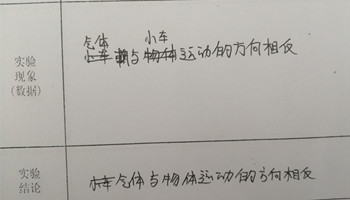 气体 小车
小车 与物体运动的方向相反
实验
现象
(数据)
实验
结论
小车气体与物体运动的方向相反